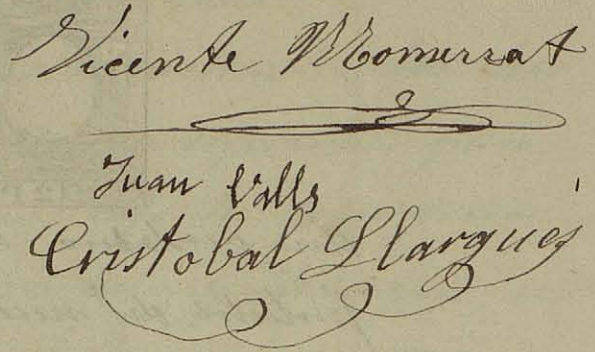 Vicente Momersat
Juan Valls
Cristobal Llargués